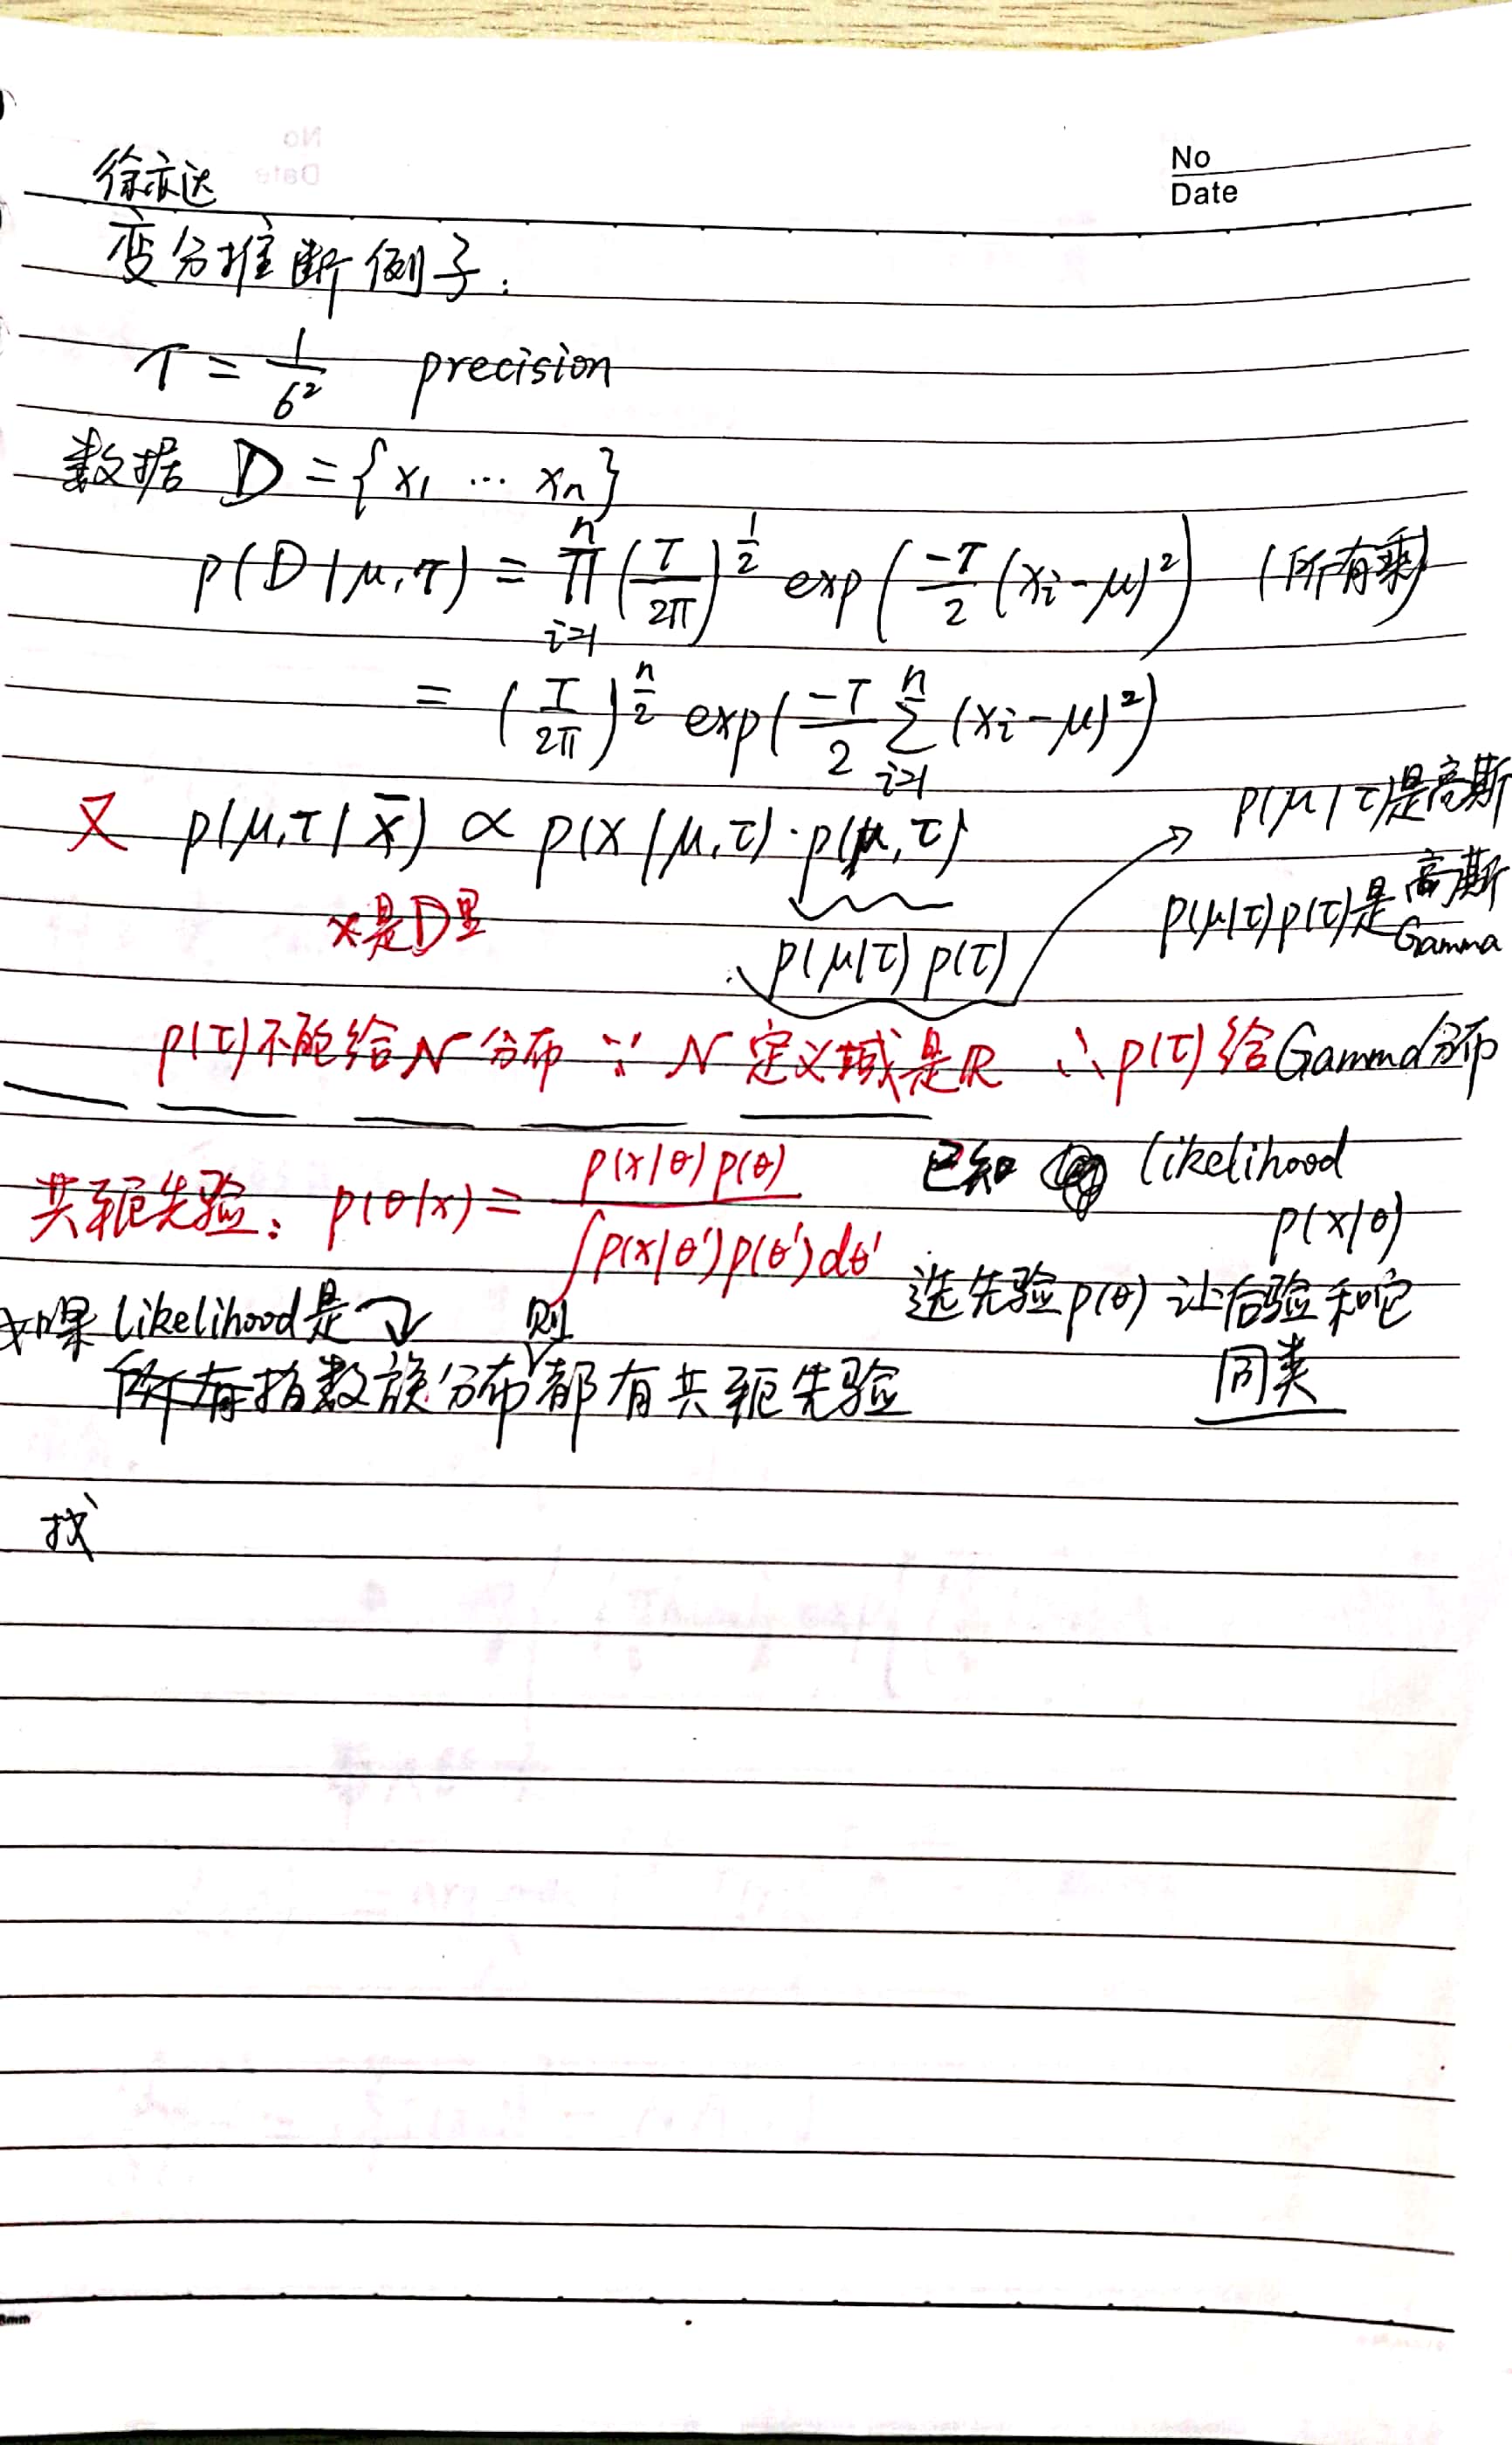 No
Date
徐亦达
变分推断例子:
τ = 1/σ² precision
数据 D = {x₁ … xₙ}
p(D|μ,τ) = ∏ᵢ₌₁ⁿ (τ/2π)^(1/2) exp(-τ/2 (xᵢ-μ)²) (所有乘)
= (τ/2π)^(n/2) exp(-τ/2 ∑ᵢ₌₁ⁿ (xᵢ-μ)²)
又 p(μ,τ|x̄) ∝ p(x|μ,τ)·p(μ,τ)
x是D里
p(μ|τ) p(τ)
p(μ|τ)是高斯
p(μ|τ)p(τ)是高斯Gamma
p(τ)不能给N分布 ∵ N定义域是R ∴ p(τ)给Gamma分布
共轭先验: p(θ|x) = p(x|θ)p(θ) / ∫p(x|θ')p(θ')dθ'
已知 likelihood
p(x|θ)
选先验p(θ) 让后验和它
同类
如果likelihood是 则
所有指数族分布都有共轭先验
找
8mm